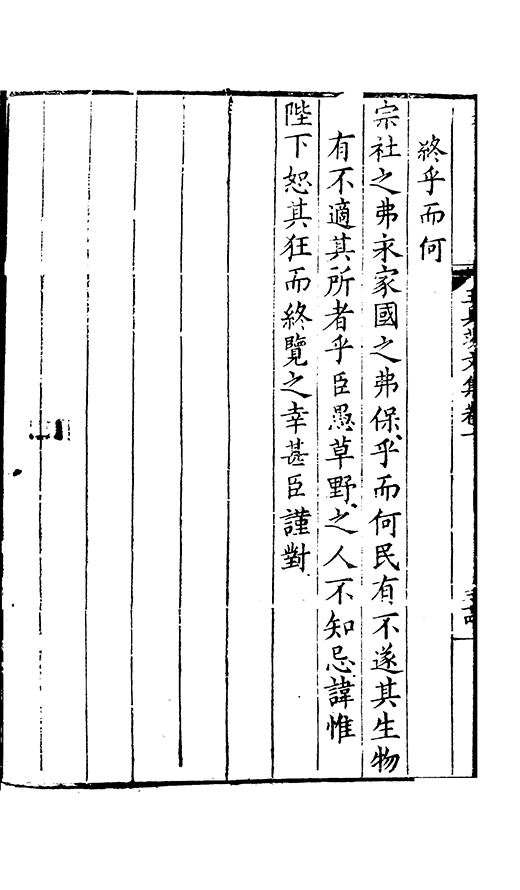 終乎而何
宗社之弗永家國之弗保乎而何民有不遂其生物
有不適其所者乎臣愚草野之人不知忌諱惟
陛下恕其狂而終覽之幸甚臣謹對
文集卷一